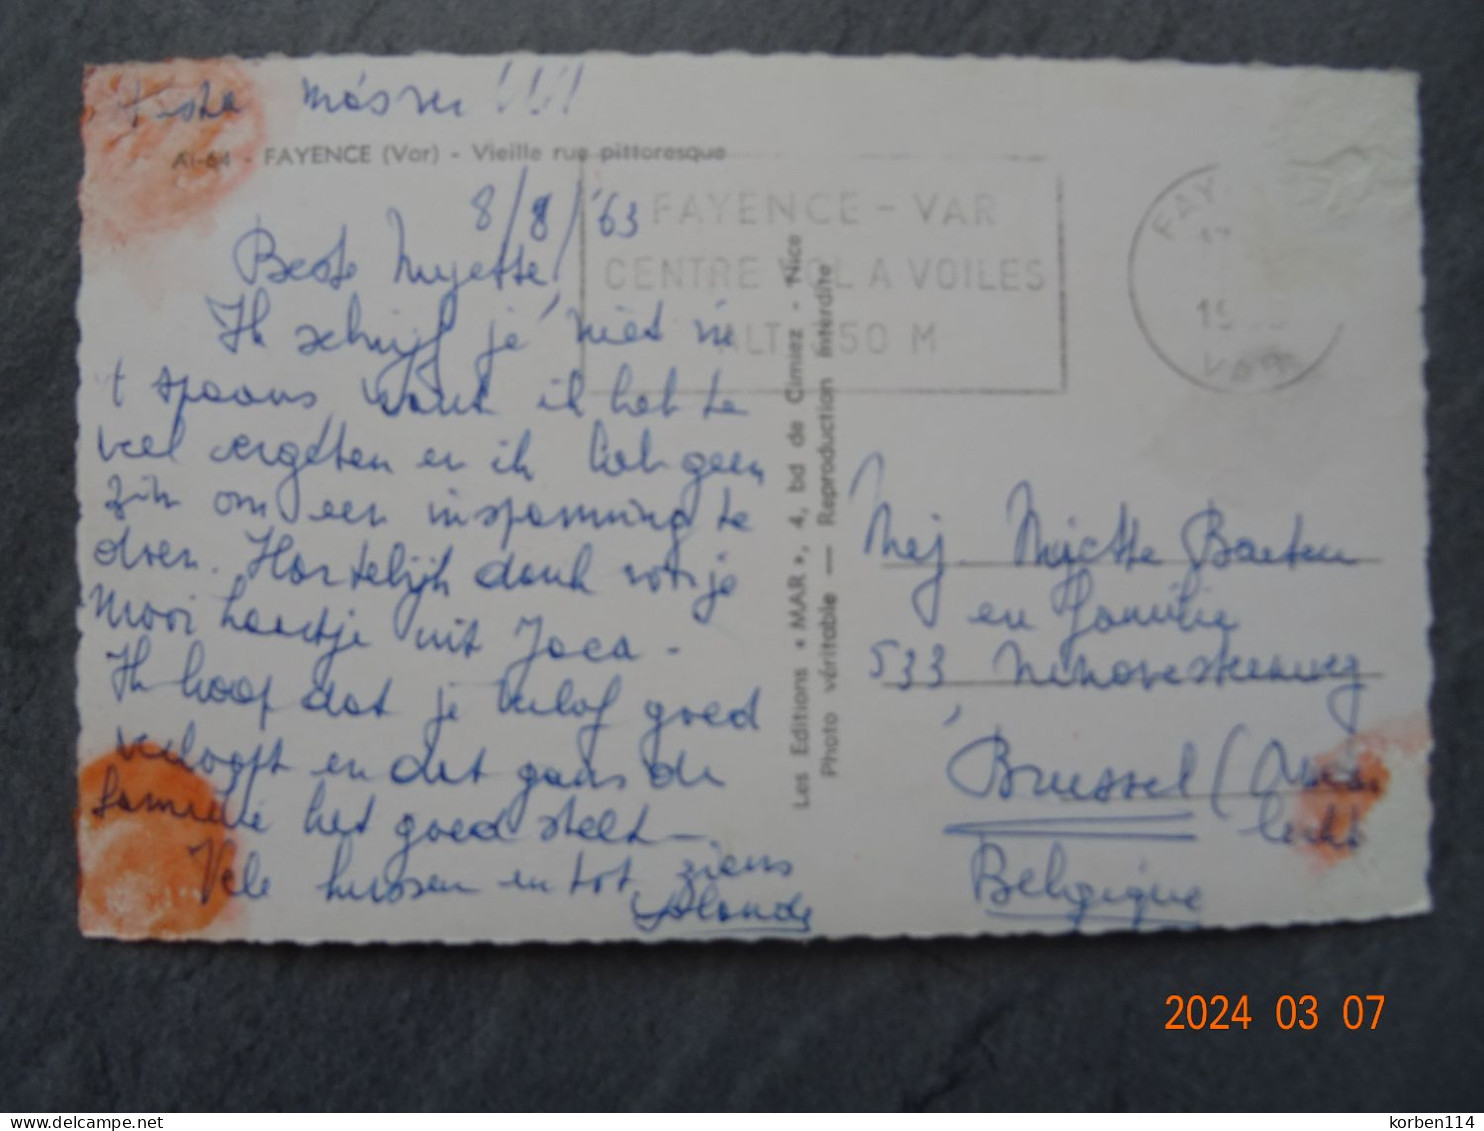 AI-64 - FAYENCE (Var) - Vieille rue pittoresque
8/8/'63
Beste Myette,
Ik schrijf je niet in
't spaans want ik heb te
veel vergeten en ik heb geen
zin om een inspanning te
doen. Hartelijk dank voor je
mooi kaartje uit Jaca -
Ik hoop dat je verlof goed
verloopt en dat gans de
familie het goed stelt -
Vele kussen en tot ziens
Yolande
Les Editions « MAR », 4, bd de Cimiez - Nice
Photo véritable — Reproduction interdite
FAYENCE - VAR
CENTRE VOL A VOILES
ALT 350 M
FAY
17
19
VAR
Mej. Myette Baeten
en familie
533 Ninovesteenweg
Brussel (Ander
lecht
Belgique
2024 03 07
delcampe.net
korben114